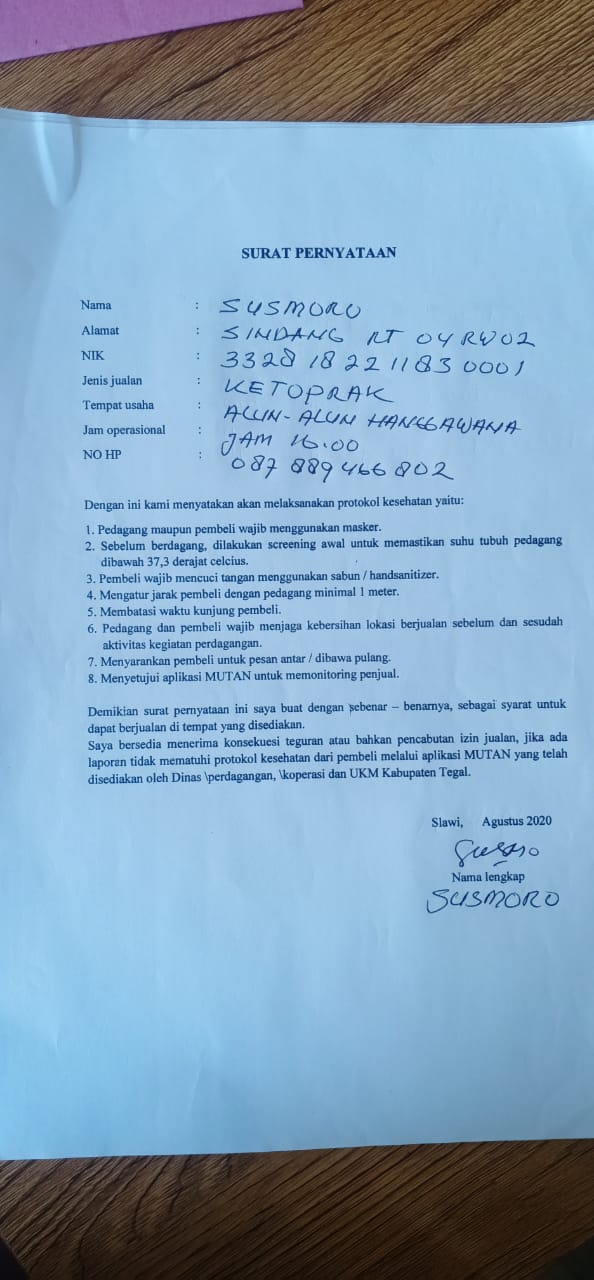 SURAT PERNYATAAN
Nama : SUSMORO
Alamat : SINDANG RT 04 RW 02
NIK : 3328 18 22 11 83 0001
Jenis jualan : KETOPRAK
Tempat usaha : ALUN-ALUN HANGGAWANA
Jam operasional : JAM 16.00
NO HP : 087 889 466 802
Dengan ini kami menyatakan akan melaksanakan protokol kesehatan yaitu:
1. Pedagang maupun pembeli wajib menggunakan masker.
2. Sebelum berdagang, dilakukan screening awal untuk memastikan suhu tubuh pedagang
dibawah 37,3 derajat celcius.
3. Pembeli wajib mencuci tangan menggunakan sabun / handsanitizer.
4. Mengatur jarak pembeli dengan pedagang minimal 1 meter.
5. Membatasi waktu kunjung pembeli.
6. Pedagang dan pembeli wajib menjaga kebersihan lokasi berjualan sebelum dan sesudah
aktivitas kegiatan perdagangan.
7. Menyarankan pembeli untuk pesan antar / dibawa pulang.
8. Menyetujui aplikasi MUTAN untuk memonitoring penjual.
Demikian surat pernyataan ini saya buat dengan sebenar – benarnya, sebagai syarat untuk
dapat berjualan di tempat yang disediakan.
Saya bersedia menerima konsekuesi teguran atau bahkan pencabutan izin jualan, jika ada
laporan tidak mematuhi protokol kesehatan dari pembeli melalui aplikasi MUTAN yang telah
disediakan oleh Dinas \perdagangan, \koperasi dan UKM Kabupaten Tegal.
Slawi, Agustus 2020
Nama lengkap
SUSMORO